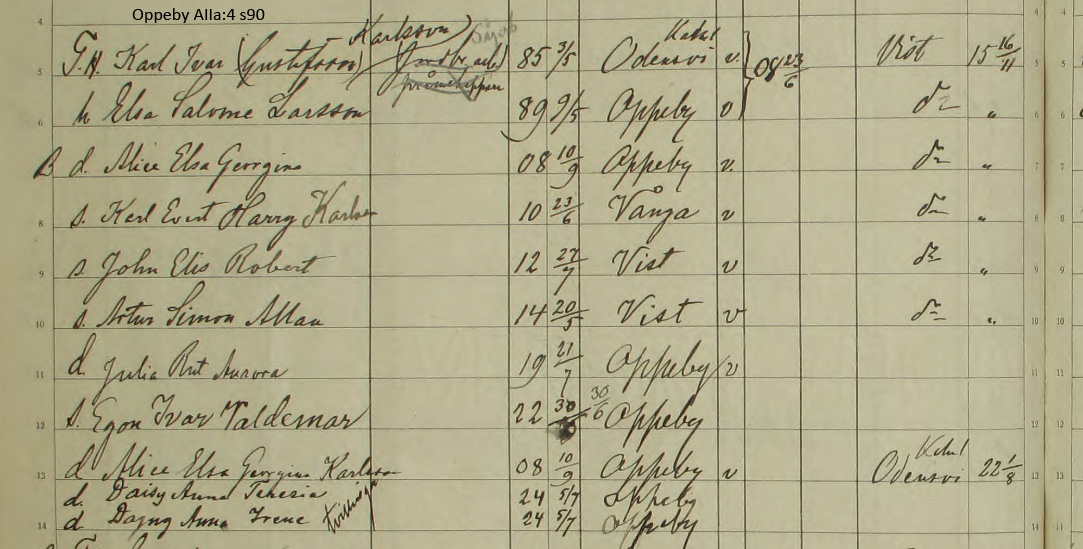 Oppeby Alla:4 s90
Karlsson)
T.H. Karl Ivar (Gustafsson) 85 3/5 Odensvi Kalm v. 08 23/6 Vist 15 16/11
h Elsa Salome Larsson 89 9/5 Oppeby v d:o "
B d. Alice Elsa Georgina 08 10/9 Oppeby v. d:o "
s. Karl Evert Harry Karlsson 10 23/6 Vånga v d:o "
s. John Elis Robert 12 27/7 Vist v d:o "
s. Artur Simon Allan 14 20/5 Vist v d:o "
d. Julia Brit Aurora 19 21/7 Oppeby v
s. Egon Ivar Valdemar 22 30 30/6 Oppeby
d Alice Elsa Georgina Karlsson 08 10/9 Oppeby v Odensvi 22 1/8
d. Daisy Anna Teresia 24 5/7 Oppeby
d Dagny Anna Irene tvillingar 24 5/7 Oppeby